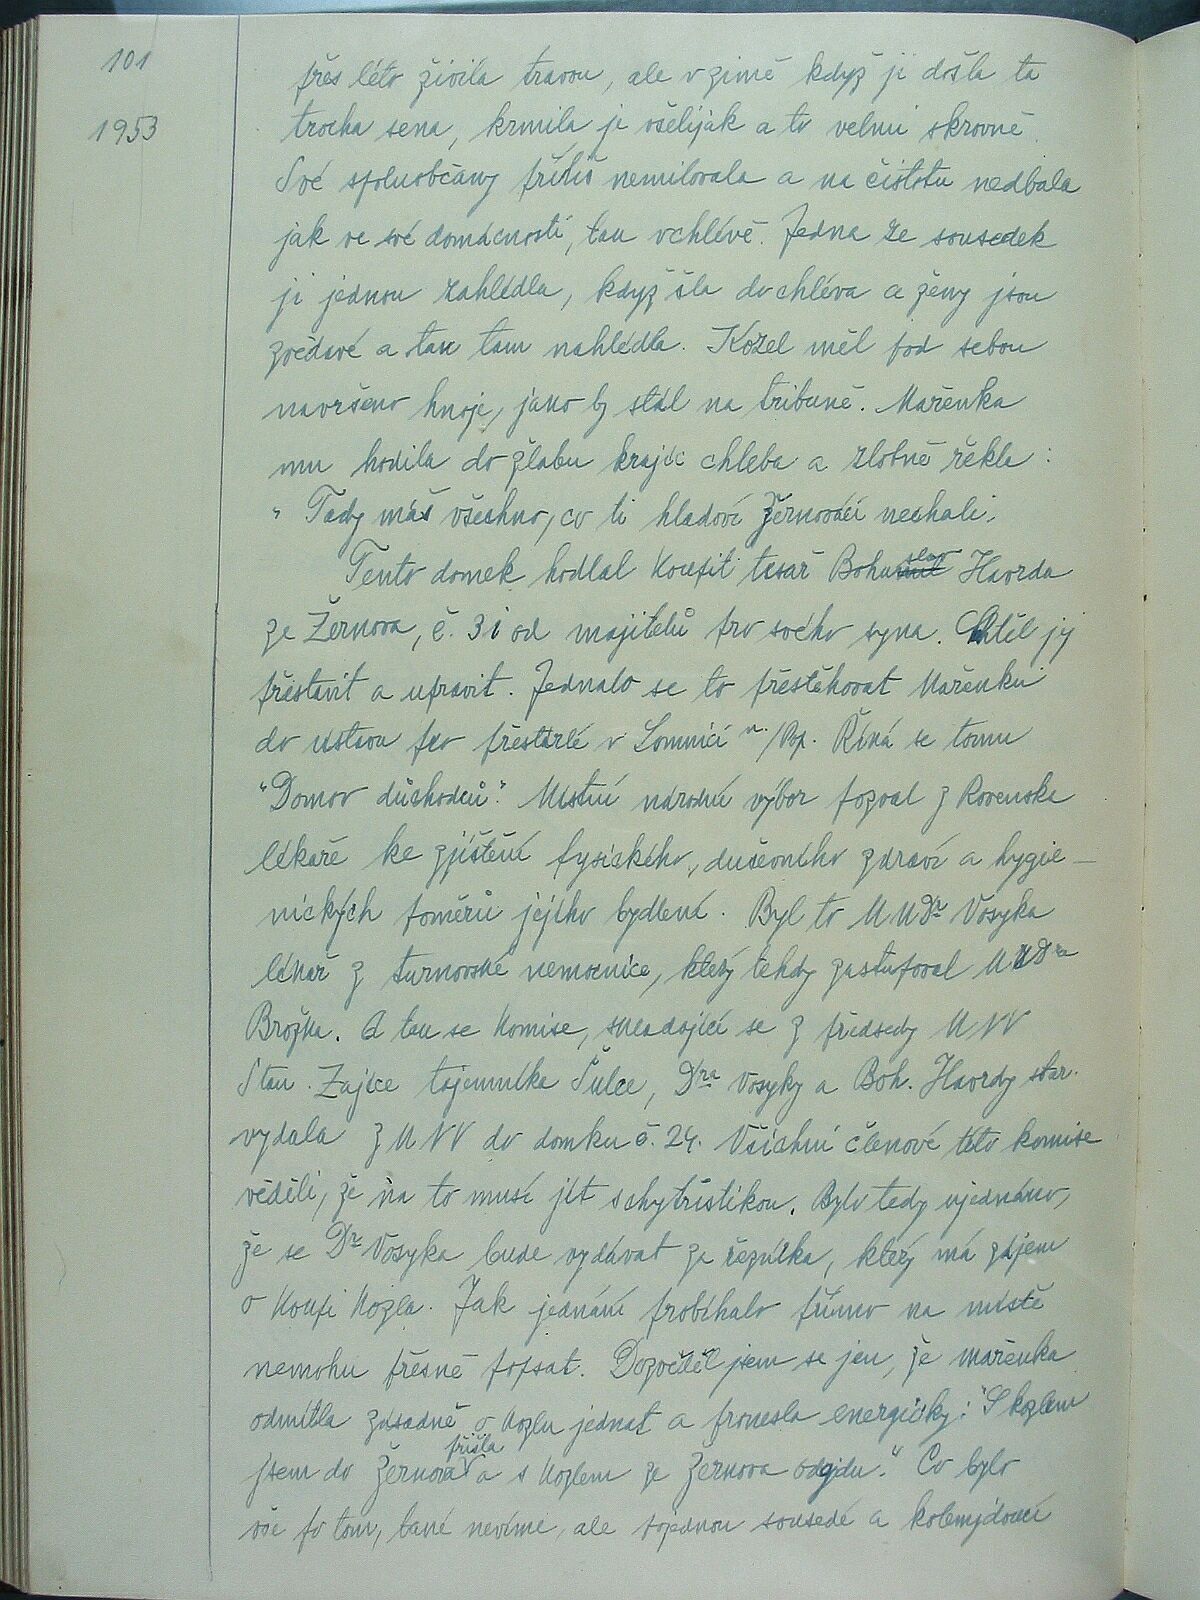 101
1953
přes léto živila travou, ale v zimě když jí došla ta
trocha sena, krmila je všelijak a to velmi skrovně.
Své spoluobčany příliš nemilovala a na čistotu nedbala
jak ve své domácnosti, tak v chlévě. Jedna ze sousedek
ji jednou zahlédla, když šla do chléva a ženy jsou
zvědavé a tak tam nahlédla. Kozel měl pod sebou
navršeno hnoje, jako by stál na tribuně. Mařenka
mu hodila do žlabu krajíc chleba a zlobně řekla:
"Tady máš všechno, co ti hladoví Žernováci nechali.
Tento domek hodlal koupit tesař Bohuslav Havrda
ze Žernova, č. 31 od majitelů pro svého syna. Chtěl jej
přestavit a upravit. Jednalo se to přestěhovat Mařenku
do ústavu pro přestárlé v Lomnici n./Pop. Říká se tomu
"Domov důchodců." Místní národní výbor pozval z Rovenska
lékaře ke zjištění fysického, duševního zdraví a hygie-
nických poměrů jejího bydlení. Byl to MUDr Vosyka
lékař z turnovské nemocnice, který tehdy zastupoval MUDra
Brožka. A tak se komise, skládající se z předsedy MNV
Stan. Zajíce tajemníka Šulce, Dra Vosyky a Boh. Havrdy star.
vydala z MNV do domku č. 24. Všichni členové této komise
věděli, že na to musí jít s chytristikou. Bylo tedy ujednáno,
že se Dr Vosyka bude vydávat za řezníka, který má zájem
o koupi kozla. Jak jednání probíhalo přímo na místě
nemohu přesně popsat. Dozvěděl jsem se jen, že Mařenka
odmítla zásadně o kozlu jednat a pronesla energicky: "S kozlem
jsem do Žernova přišla a s kozlem ze Žernova odejdu." Co bylo
vše po tom, také nevíme, ale pojednou sousedé a kolemjdoucí